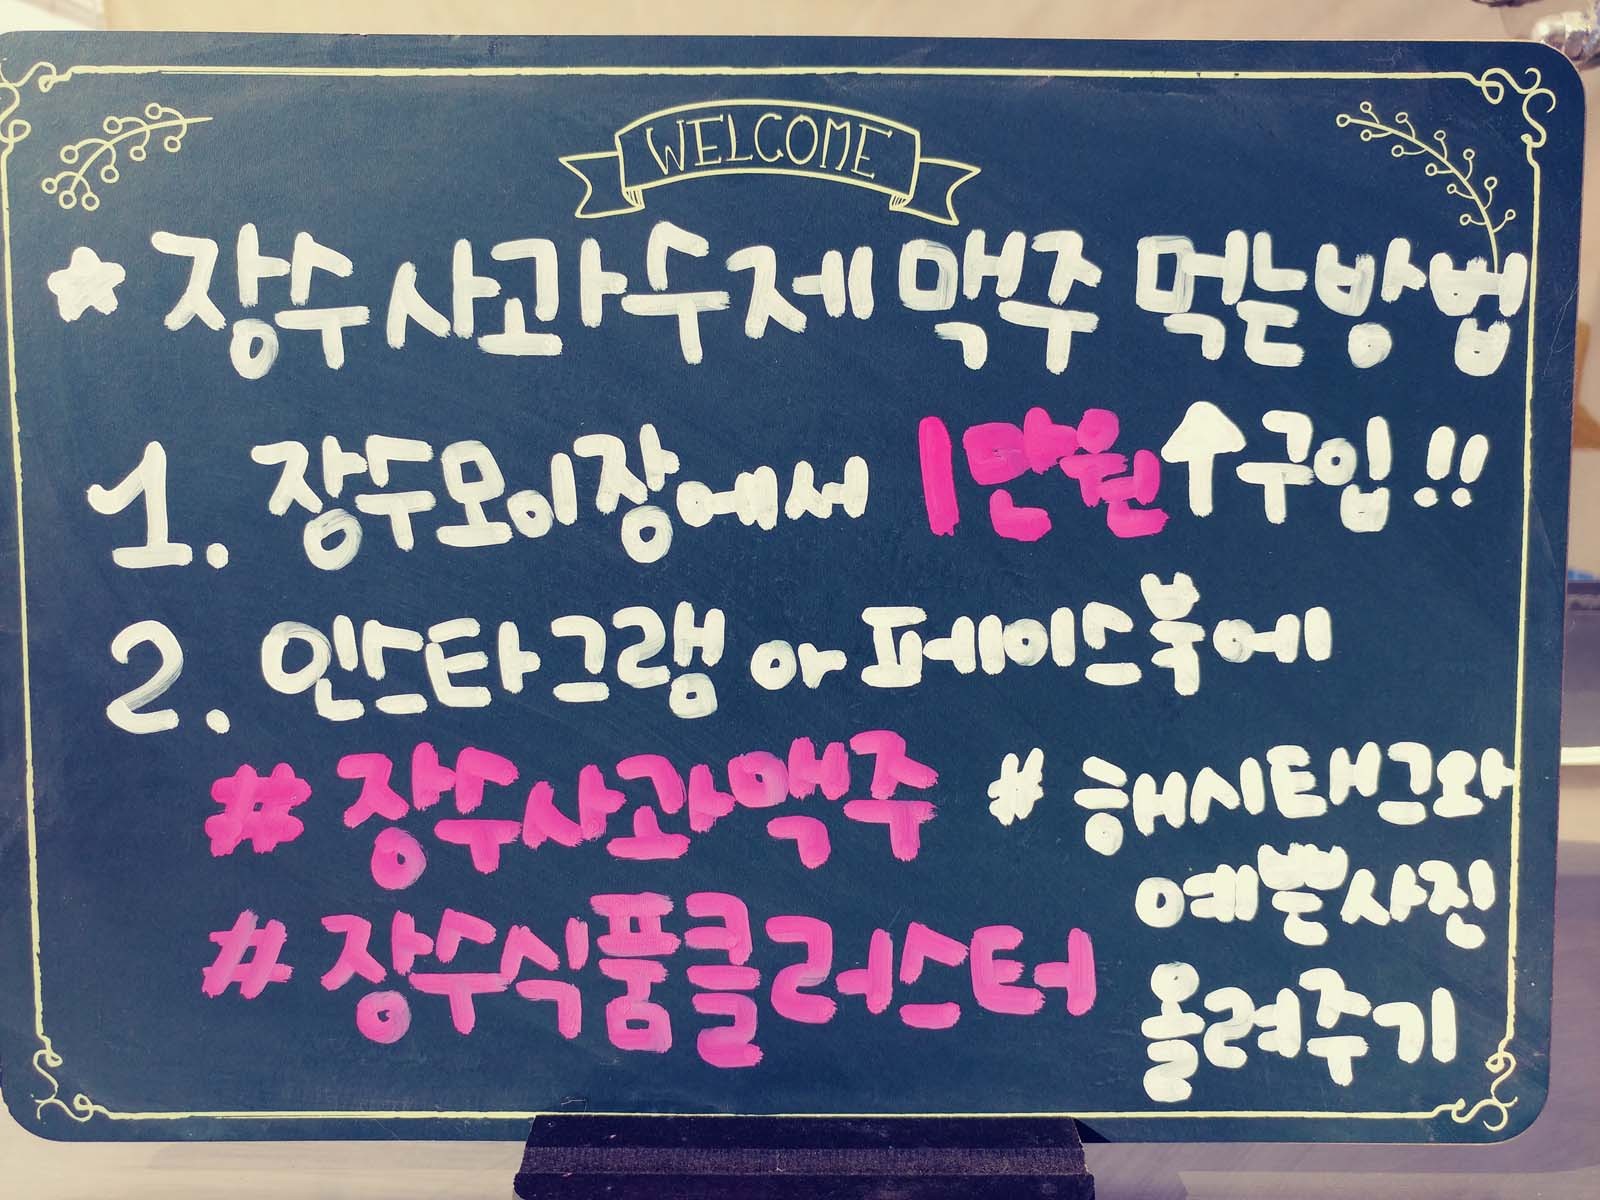 WELCOME
☆ 장수사과수제 맥주 먹는방법
1. 장수모이장에서 1만원↑구입!!
2. 인스타그램 or 페이스북에
#장수사과맥주 #해시태그와
예쁜사진
#장수식품클러스터
올려주기